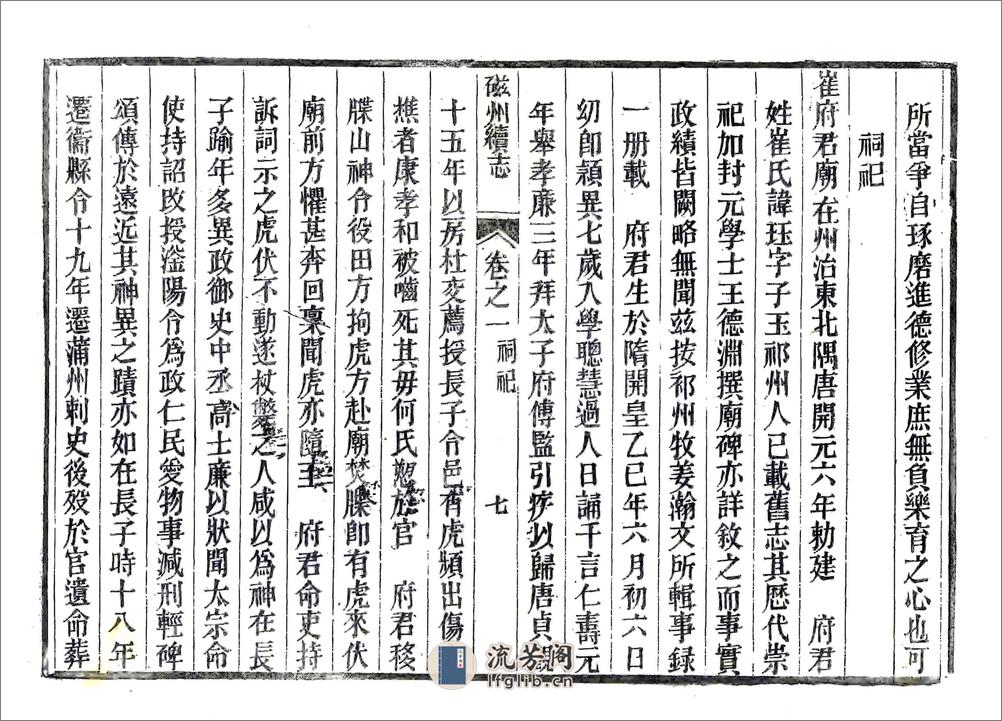 所當爭自琢磨進德修業庶無負樂育之心也可
祠祀
崔府君廟在州治東北隅唐開元六年勅建　府君
姓崔氏諱珏字子玉祁州人已載舊志其歷代崇
祀加封元學士王德淵撰廟碑亦詳敘之而事實
政績皆闕略無聞茲按祁州牧姜瀚文所輯事錄
一册載　府君生於隋開皇乙巳年六月初六日
幼卽穎異七歲入學聰慧過人日誦千言仁壽元
年舉孝廉三年拜太子府傅監引疾以歸唐貞觀
磁州續志　卷之一　祠祀　七
十五年以房杜交薦授長子令邑有虎頻出傷
樵者康孝和被嚙死其毋何氏愬於官　府君移
牒山神令役田方拘虎方赴廟焚牒卽有虎來伏
廟前方懼甚奔回稟聞虎亦隨至　府君命吏持
訴詞示之虎伏不動遂杖斃之人咸以爲神在長
子踰年多異政御史中丞高士廉以狀聞太宗命
使持詔改授滏陽令爲政仁民愛物事減刑輕碑
頌傳於遠近其神異之蹟亦如在長子時十八年
遷衞縣令十九年遷蒲州刺史後歿於官遺命葬
流芳閣
lfglib.cn